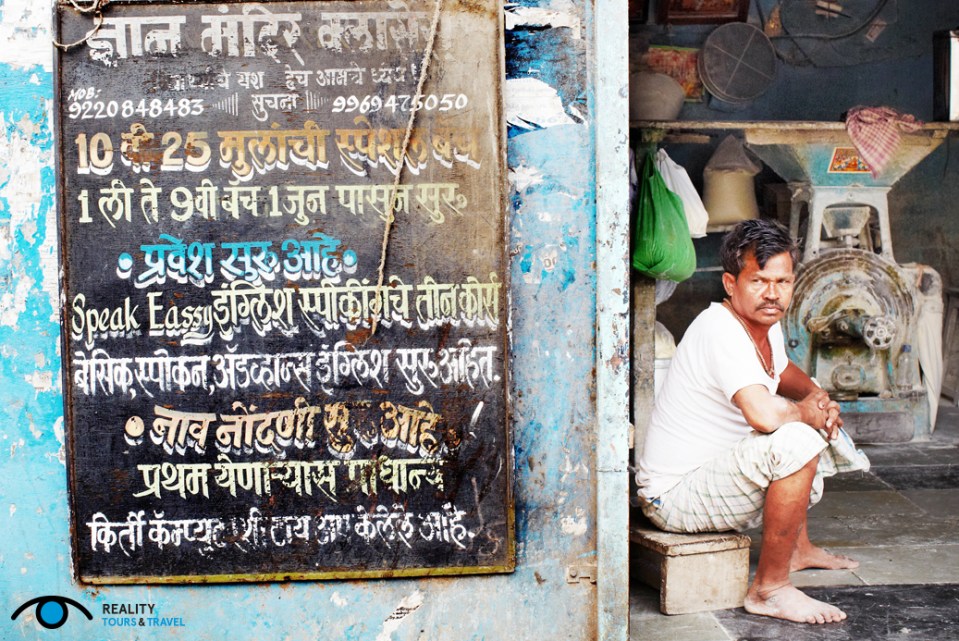 ज्ञान मंदिर क्लासेस
यश हेच आमचे ध्येय
MOB:
9220848483 सुचना 9969475050
10 वी 25 मुलांची स्पेशल बॅच
1 ली ते 9 वी बॅच 1 जुन पासुन सुरु
• प्रवेश सुरु आहे •
Speak Eassy इंग्लिश स्पीकींगचे तीन कोर्स
बेसिक, स्पोकन, ॲडव्हान्स इंग्लिश सुरु आहेत.
• नाव नोंदणी सुरु आहे •
प्रथम येणाऱ्यास प्राधान्य
किर्ती कॅम्प्युटरशी टाय अप केलेले आहे.
REALITY
TOURS & TRAVEL